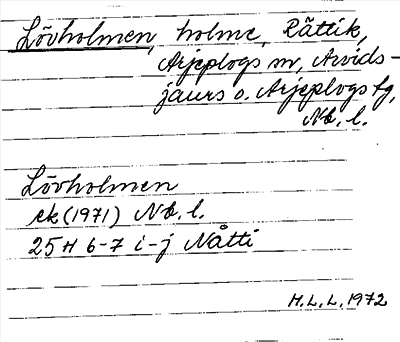 Lövholmen, holme, Rättik,
Arjeplogs sn, Arvids-
jaurs o. Arjeplogs tg,
Nb. l.
Lövholmen
ek (1971) Nb. l.
25H 6-7 i-j Nåtti
H.L.L. 1972